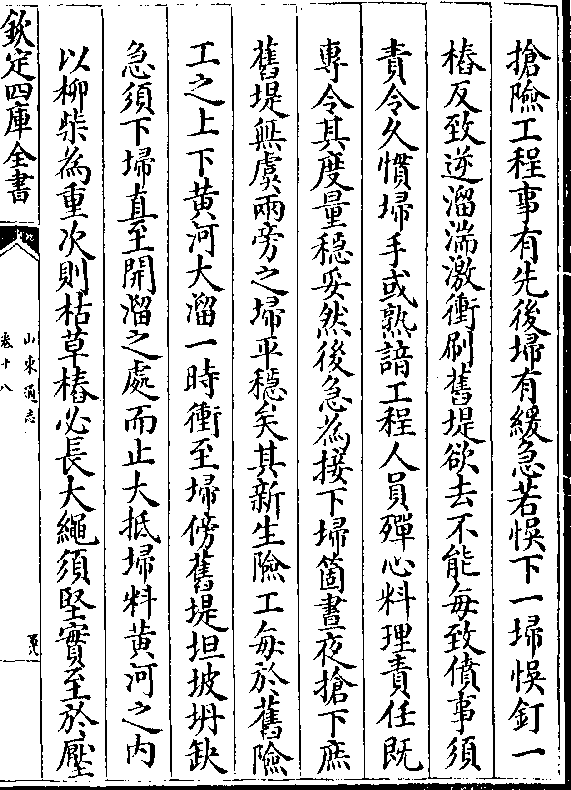 搶險工程事有先後埽有緩急若悞下一埽悞釘一
樁反致逆溜湍激衝刷舊堤欲去不能每致僨事須
責令久慣埽手或熟諳工程人員殫心料理責任既
專令其度量穩妥然後急為接下埽箇晝夜搶下庶
舊堤無虞兩旁之埽平穩矣其新生險工每於舊險
工之上下黄河大溜一時衝至埽傍舊堤坦坡坍缺
急須下埽直至開溜之處而止大抵埽料黄河之内
以柳柴為重次則枯草樁必長大繩須堅實至於壓
欽定四庫全書
山東通志
卷十八